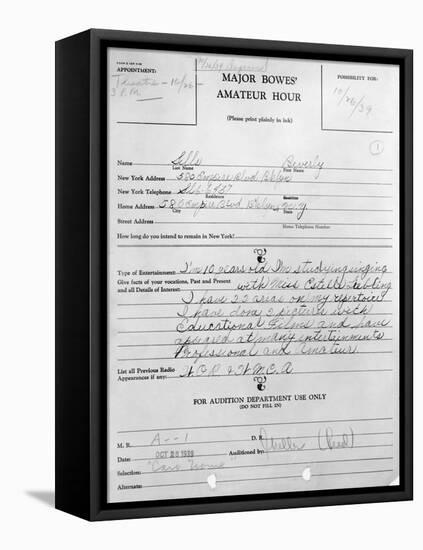 APPOINTMENT:
Theatre - 10/26 -
3 P.M.
MAJOR BOWES'
AMATEUR HOUR
(Please print plainly in ink)
POSSIBILITY FOR:
10/26/39
1
Name Sills Beverly
Last Name First Name
New York Address 580 Empire Blvd Bklyn
New York Telephone
Residence
Home Address 580 Empire Blvd Bklyn
City State
Street Address
Home Telephone Number
How long do you intend to remain in New York?
Type of Entertainment: I'm 10 years old I'm studying singing
Give facts of your vocations, Past and Present with Miss Estelle Liebling
and all Details of Interest: I have 22 arias on my repertoire
I have done 2 pictures with
Educational Films and have
appeared at many entertainments
Professional and Amateur
List all Previous Radio W.O.R. & W.M.C.A
Appearances if any:
FOR AUDITION DEPARTMENT USE ONLY
(DO NOT FILL IN)
M. B. A--1 D. R.
Date: OCT 26 1939 Auditioned by: (Reed)
Selection: "Caro Nome"
Alternate: